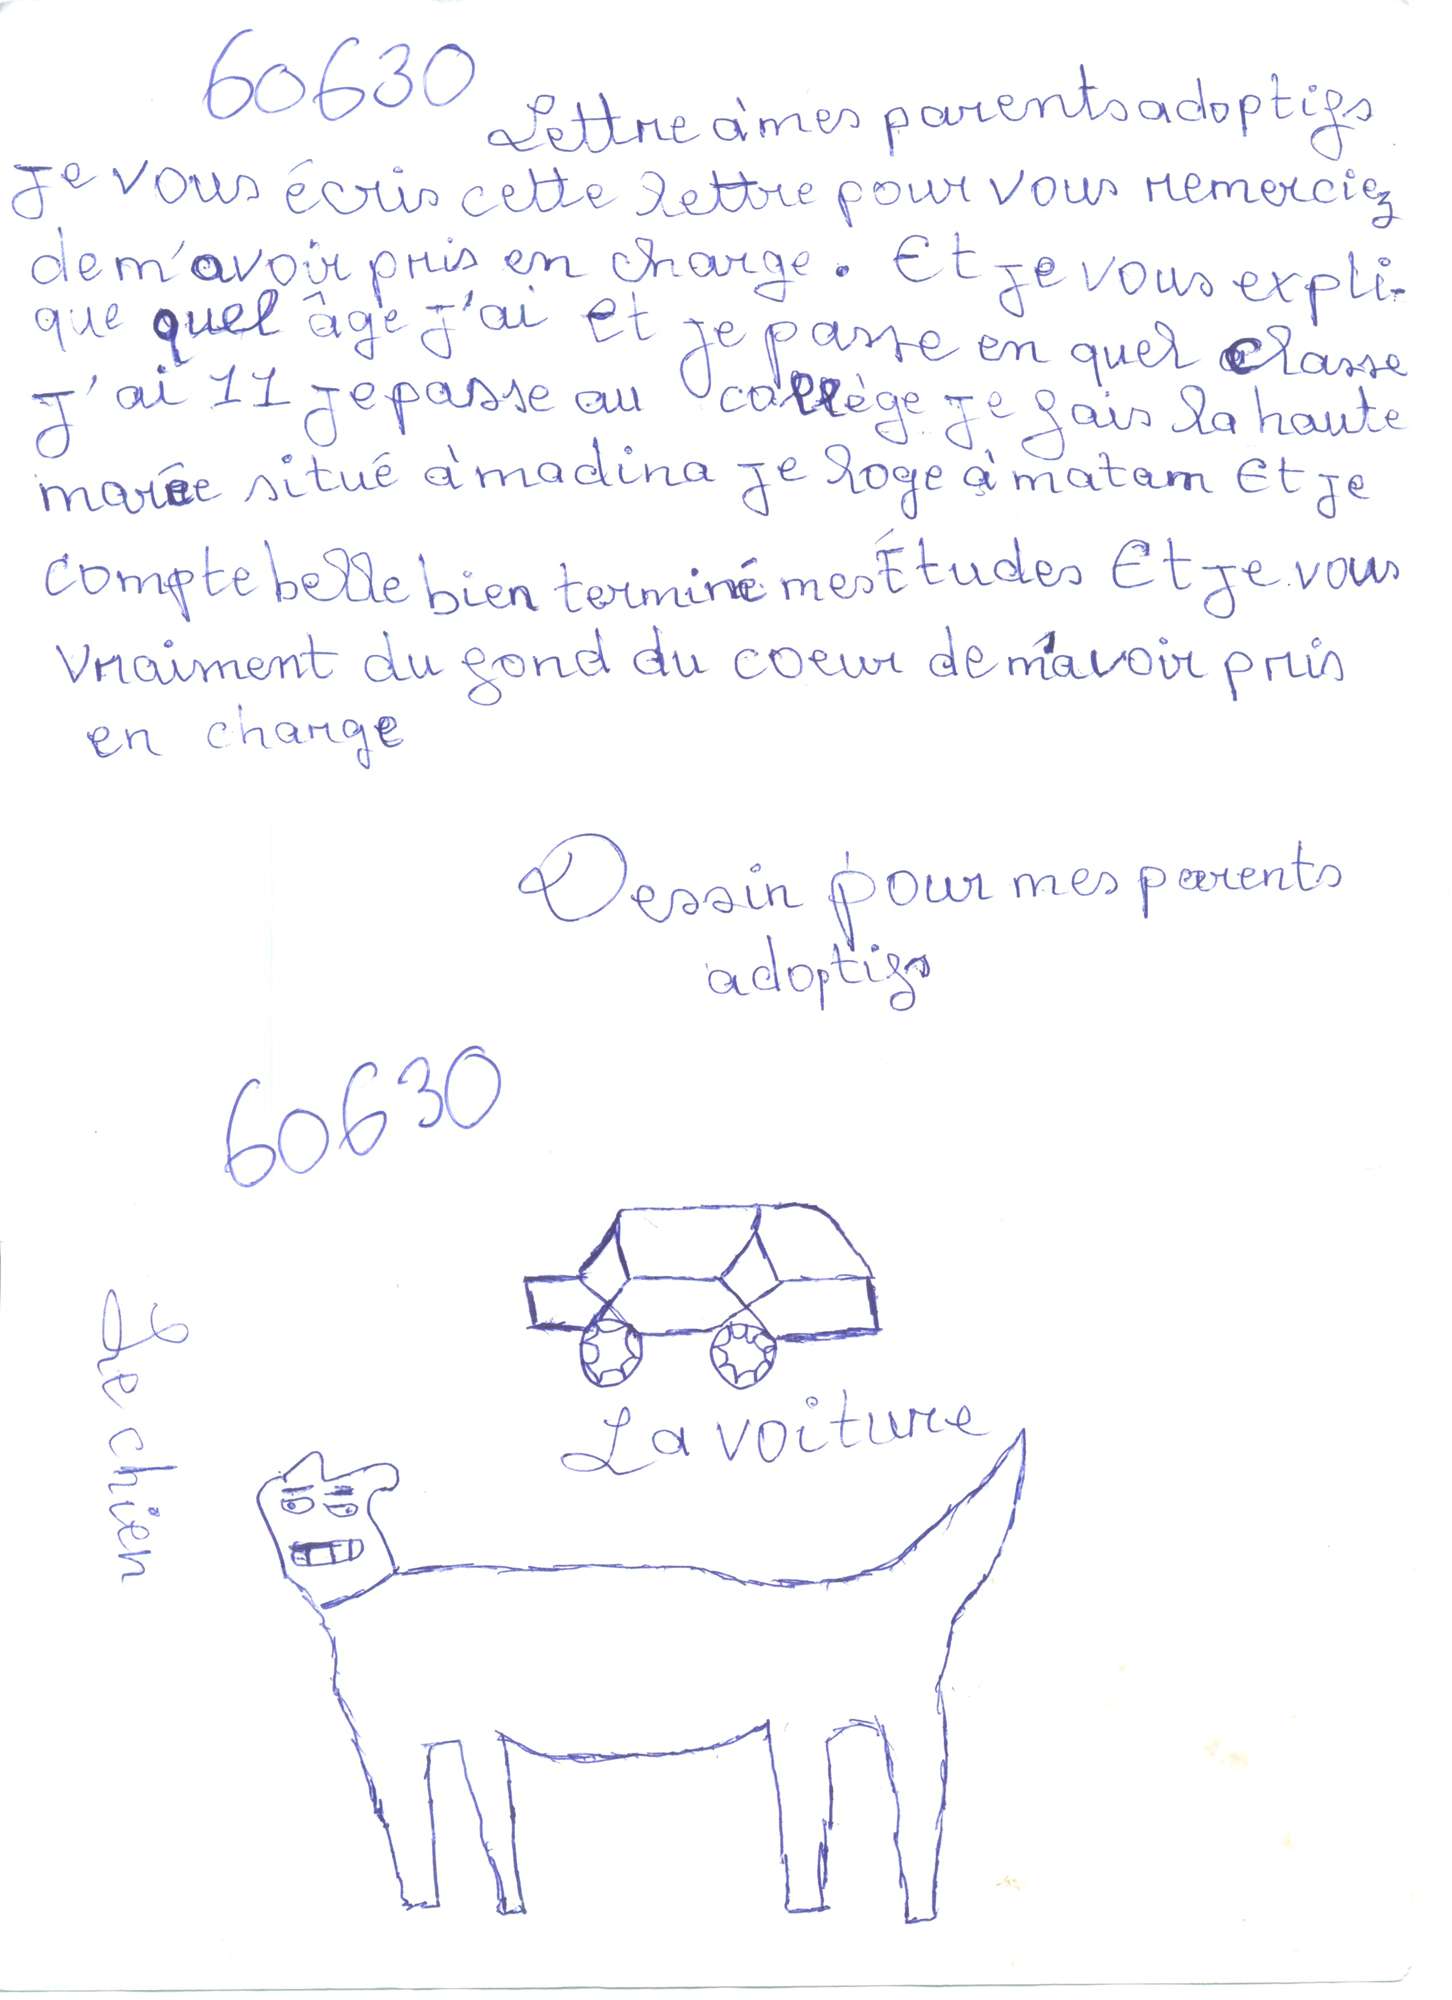 60630
Lettre à mes parents adoptifs
je vous écris cette lettre pour vous remerciez
de m'avoir pris en charge. Et je vous expli-
que quel âge j'ai et je passe en quel classe
j'ai 11 je passe au collège je fais la haute
marée situé à madina je loge à matam Et je
compte belle bien terminé mes Études Et je vous
vraiment du fond du coeur de m'avoir pris
en charge
Dessin pour mes parents
adoptifs
60630
La voiture
Le chien